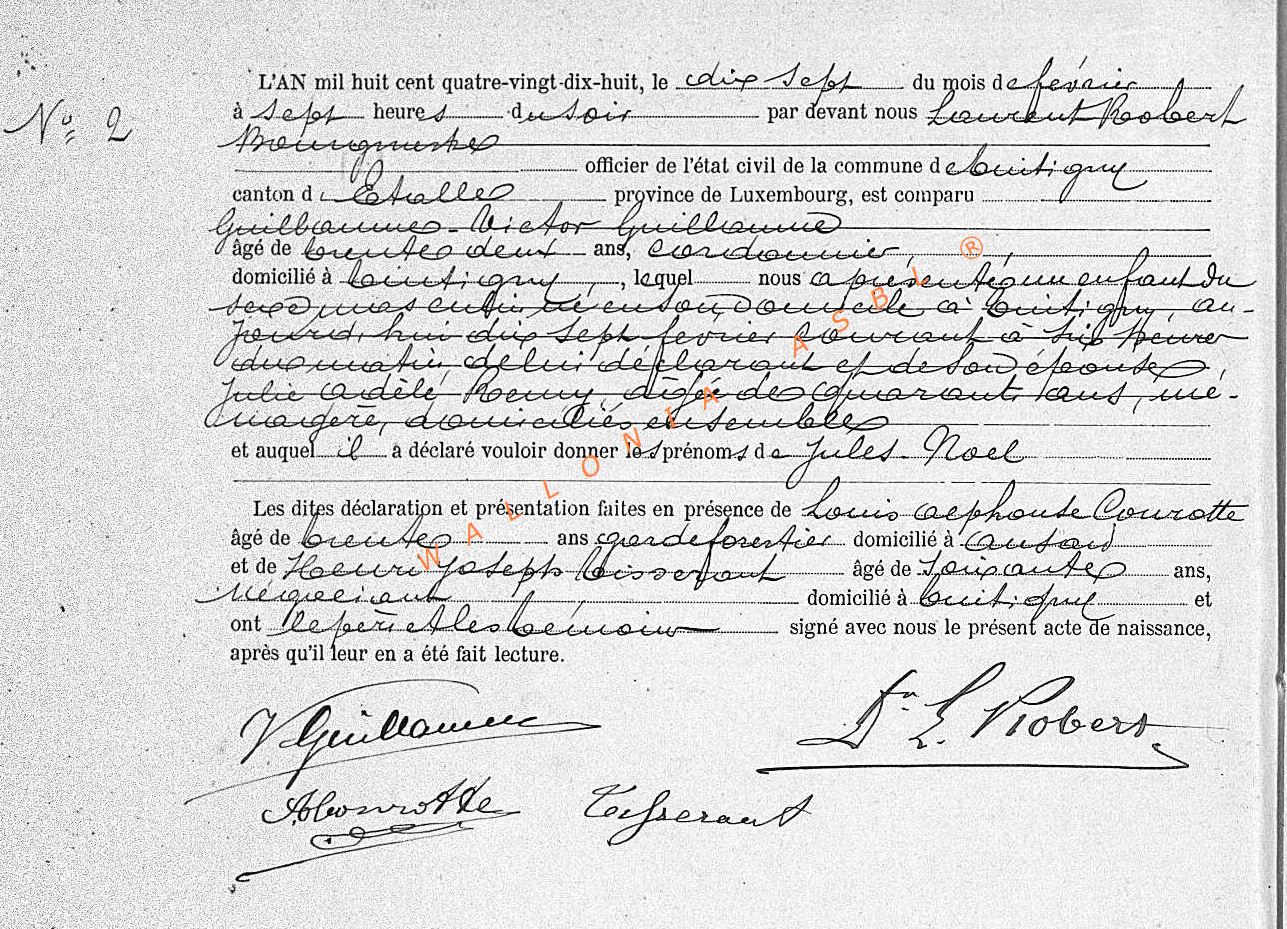 N° 2
L'AN mil huit cent quatre-vingt-dix-huit, le dix sept du mois de février
à sept heures du soir par devant nous Laurent Robert
Bourgmestre
officier de l'état civil de la commune de Tintigny
canton d'Etalle province de Luxembourg, est comparu
Guillaume Victor Guillaume
âgé de trente deux ans, cordonnier,
domicilié à Tintigny, lequel nous a présenté un enfant du
sexe masculin né en son domicile à Tintigny, au-
jourd'hui dix sept fevrier courant à six heures
du matin, de lui déclarant et de son épouse,
Julie Adèle Remy, agée de quarante ans, mé-
nagère, domiciliés ensemble
et auquel il a déclaré vouloir donner les prénoms de Jules Noel
Les dites déclaration et présentation faites en présence de Louis Alphonse Courotte
âgé de trente ans garde forestier domicilié à Ansart
et de Henri Joseph Tisserant âgé de soixante ans,
négociant domicilié à Tintigny et
ont le père et les témoins signé avec nous le présent acte de naissance,
après qu'il leur en a été fait lecture.
V Guillaume
Dr L. Robert
A Courotte
Tisserant
WALLONIA ASBL ®